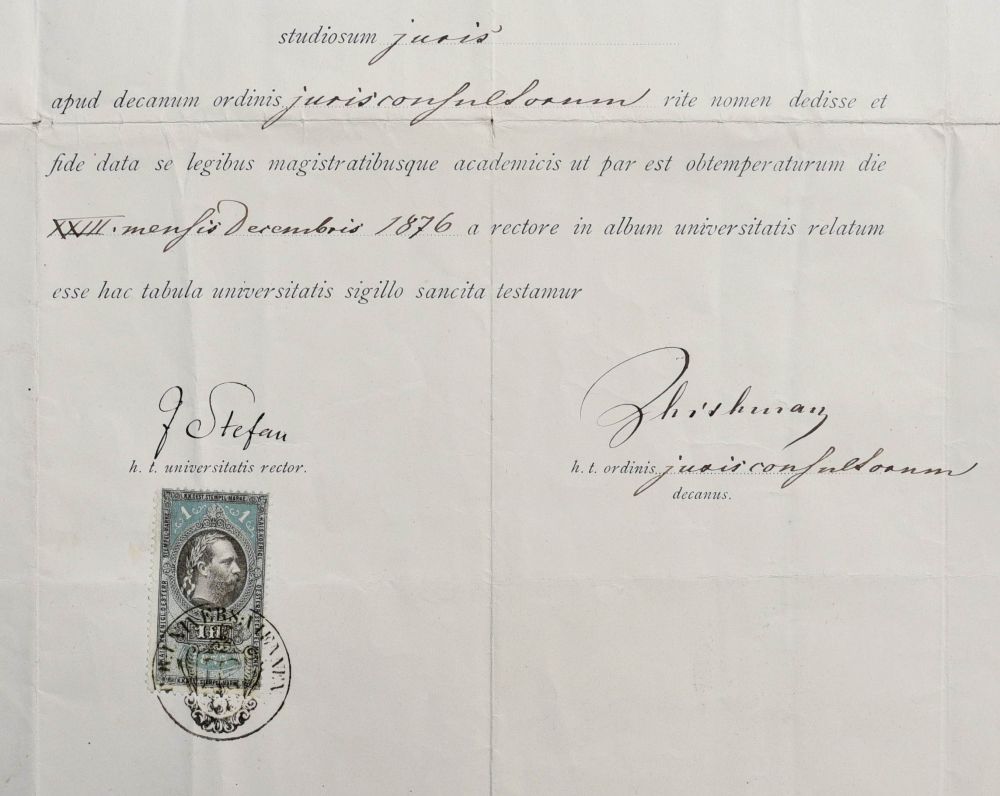 studiosum juris
apud decanum ordinis jurisconsultorum rite nomen dedisse et
fide data se legibus magistratibusque academicis ut par est obtemperaturum die
XXIII. mensis Decembris 1876 a rectore in album universitatis relatum
esse hac tabula universitatis sigillo sancita testamur
J Stefan
h. t. universitatis rector.
Zhishman
h. t. ordinis jurisconsultorum
decanus.
1 1
1 fl
UNIVERS. VIENNEN